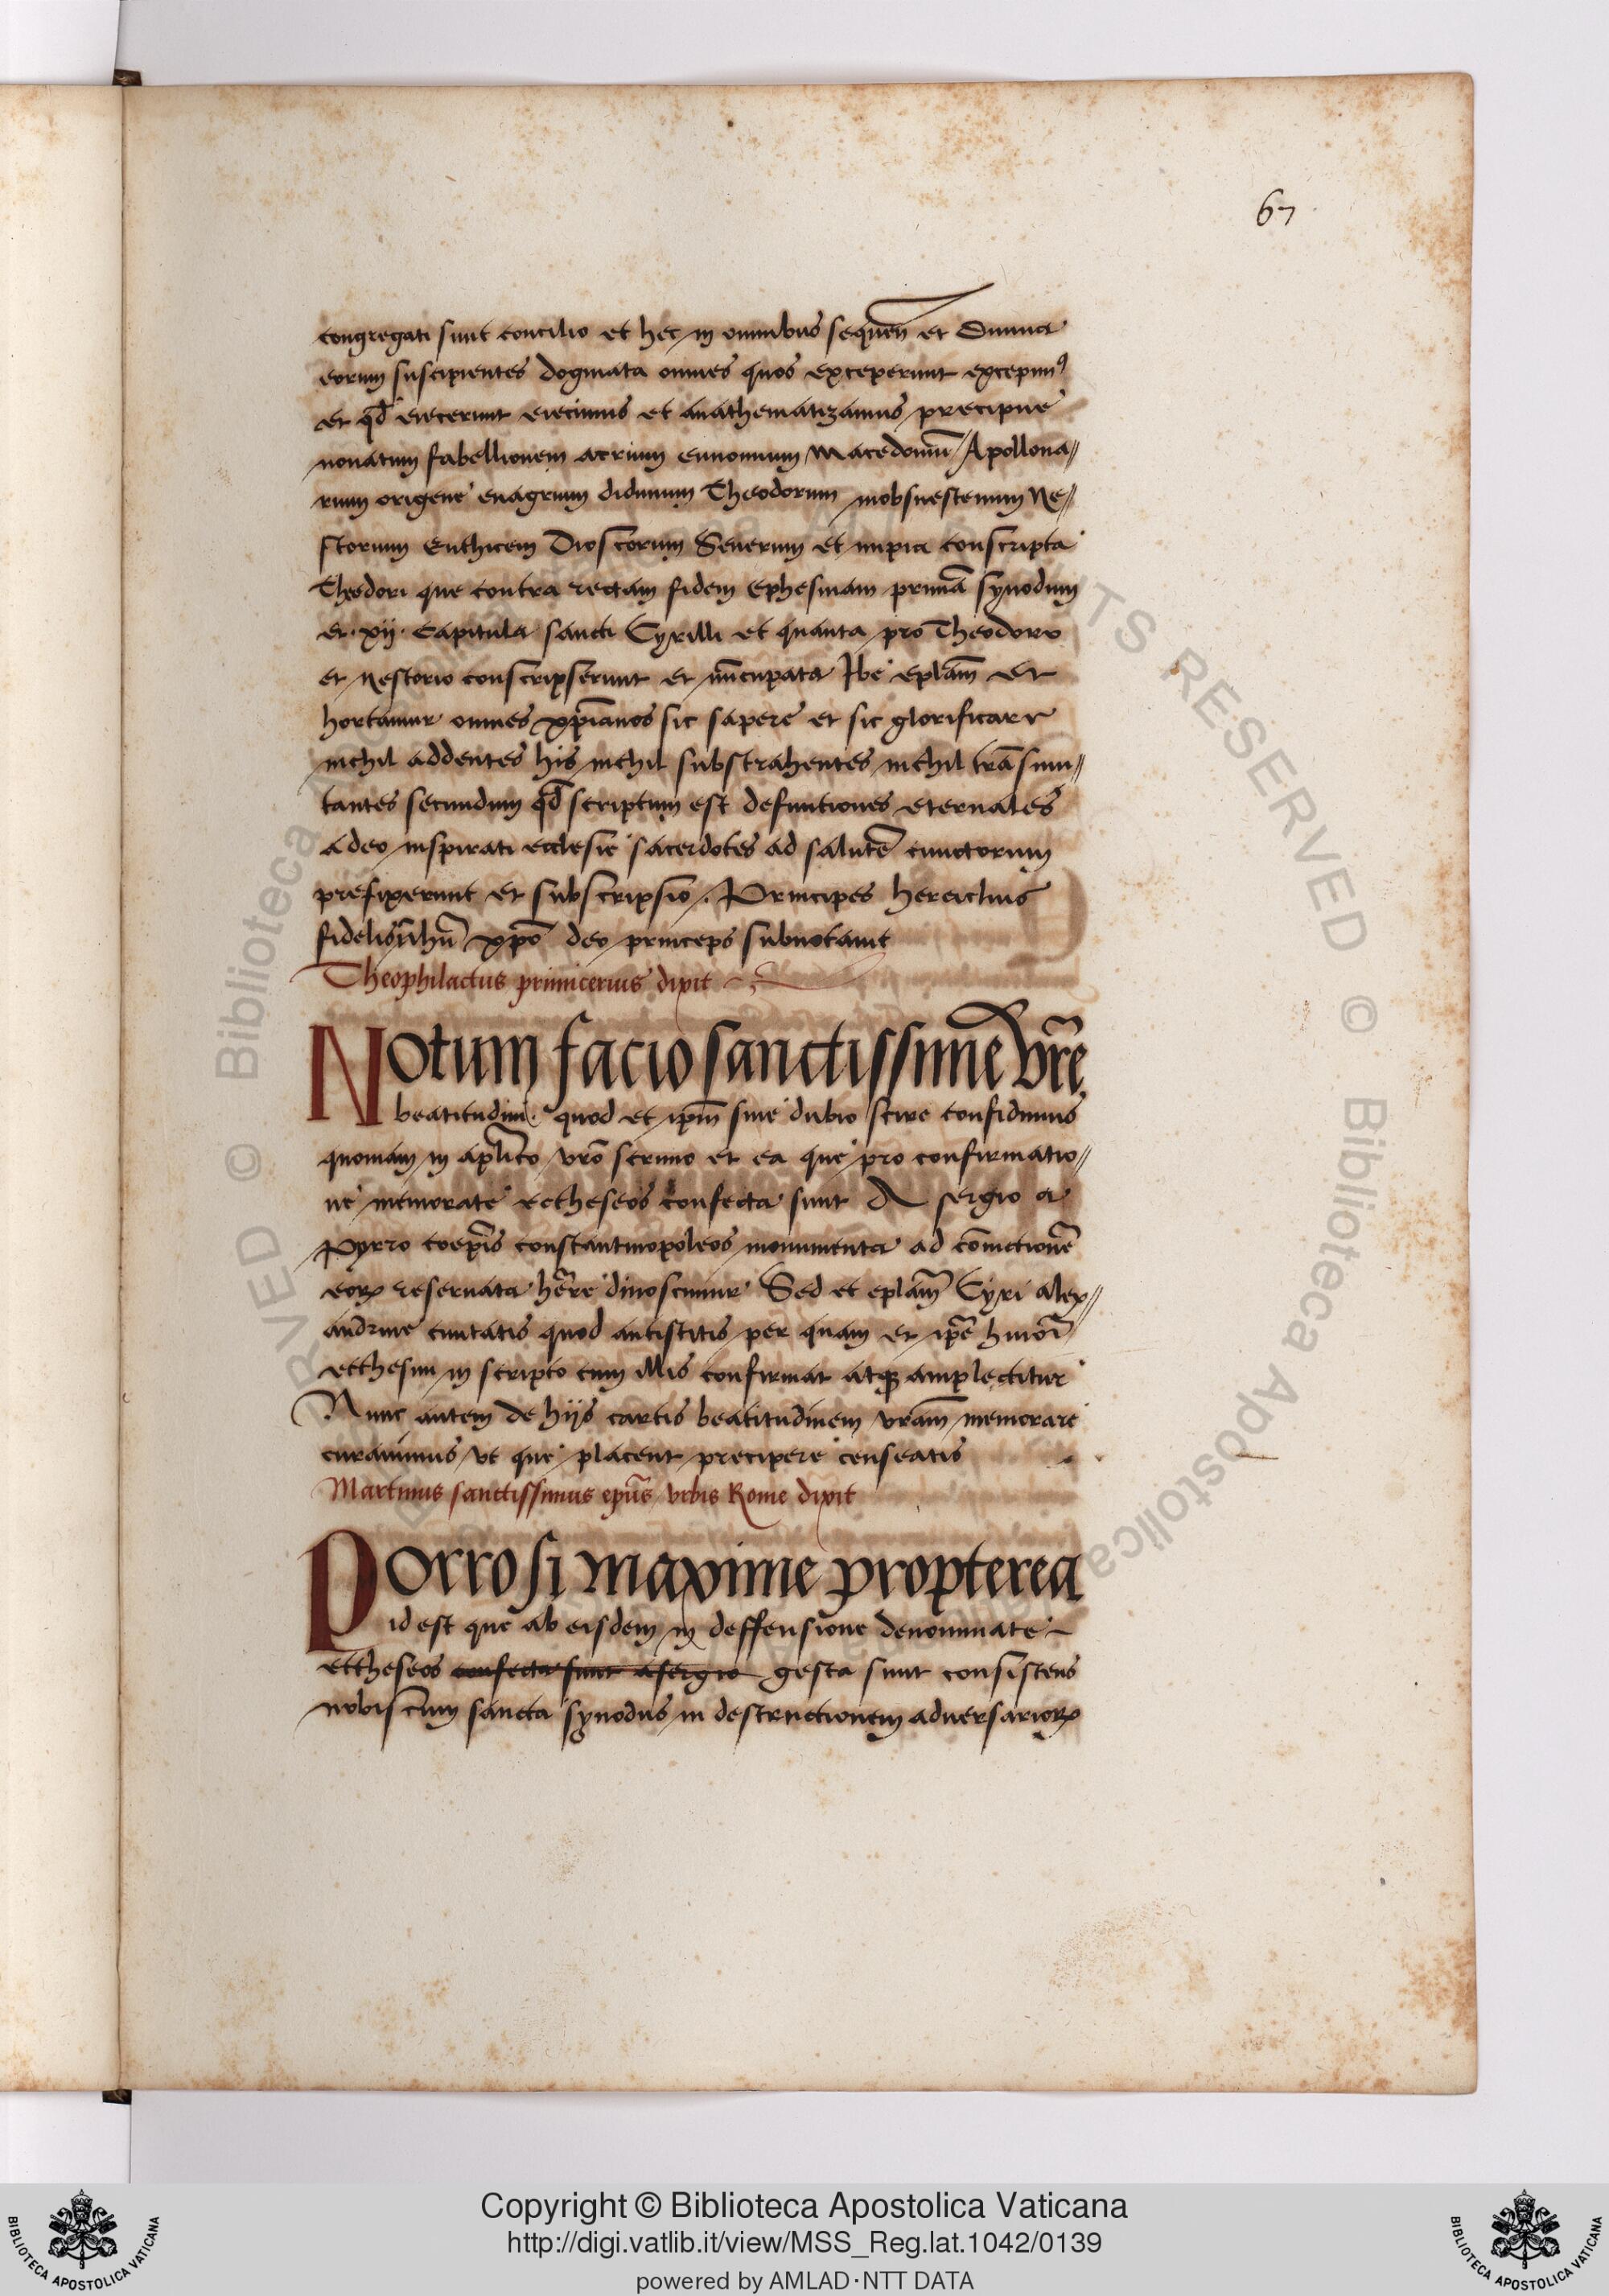 67
congregati sunt concilio et hec in omnibus sequen̄ et Diuina
eorum suscipientes dogmata omnes quos exceperunt excepim9
et qd̄ eiecerunt eiecimus et anathematizamus precipue
nouatum fabellionem arrium eunomium Macedoniū Apollona//
rium origene euagrium didimum Theodorum mobsuestenum Ne//
storium Euthicem Dioscorum Seuerum et impia conscripta
Theodori que contra rectam fidem Ephesinam primā synodum
et · xij · Capitula sancti Cyrilli et quanta pro Theodoro
et Nestorio conscripserunt et nūcupata Ibe epl̄am et
hortamur omnes xp̄ianos sic sapere et sic glorificare
nichil addentes his nichil substrahentes nichil trāsmu//
tantes secundum qd̄ scriptum est definitiones eternales
a deo inspirati ecclesie sacerdotes ad salutē cunctorum
prefixerunt et subscripsio . Principes heraclius
fidelis in xpō deo princeps subnotauit
Theophilactus primicerius dixit
Notum facio sanctissime vr̄e
beatitudini. quod et ip̄m sine dubio scire confidimus
quoniam in apl̄ico vr̄o scrinio et ea que pro confirmatio//
ne memorate ectheseos confecta sunt A sergio a
Pyrro coep̄is constantinopoleos monumenta ad cōmctionē
eorꝝ reseruata hr̄ere dinoscimur Sed et epl̄am Cyri alex//
andrine ciuitatis quod antistitis per quam et ip̄e
ecthesim in scripto cum illis confirmat atqꝫ amplectitur
Nunc autem de hijs cartis beatitudinem vr̄am memorare
curauimus vt que placent precipere censeatis
Martinus sanctissimus ep̄us vrbis Rome dixit
Porro si maxime propterea
id est que ab eisdem in deffensione denominate
ectheseos confecta sunt a sergio gesta sunt consistens
nobiscum sancta synodus in destructionem aduersariorꝝ
Copyright © Biblioteca Apostolica Vaticana
http://digi.vatlib.it/view/MSS_Reg.lat.1042/0139
powered by AMLAD·NTT DATA
BIBLIOTECA APOSTOLICA VATICANA
BIBLIOTECA APOSTOLICA VATICANA